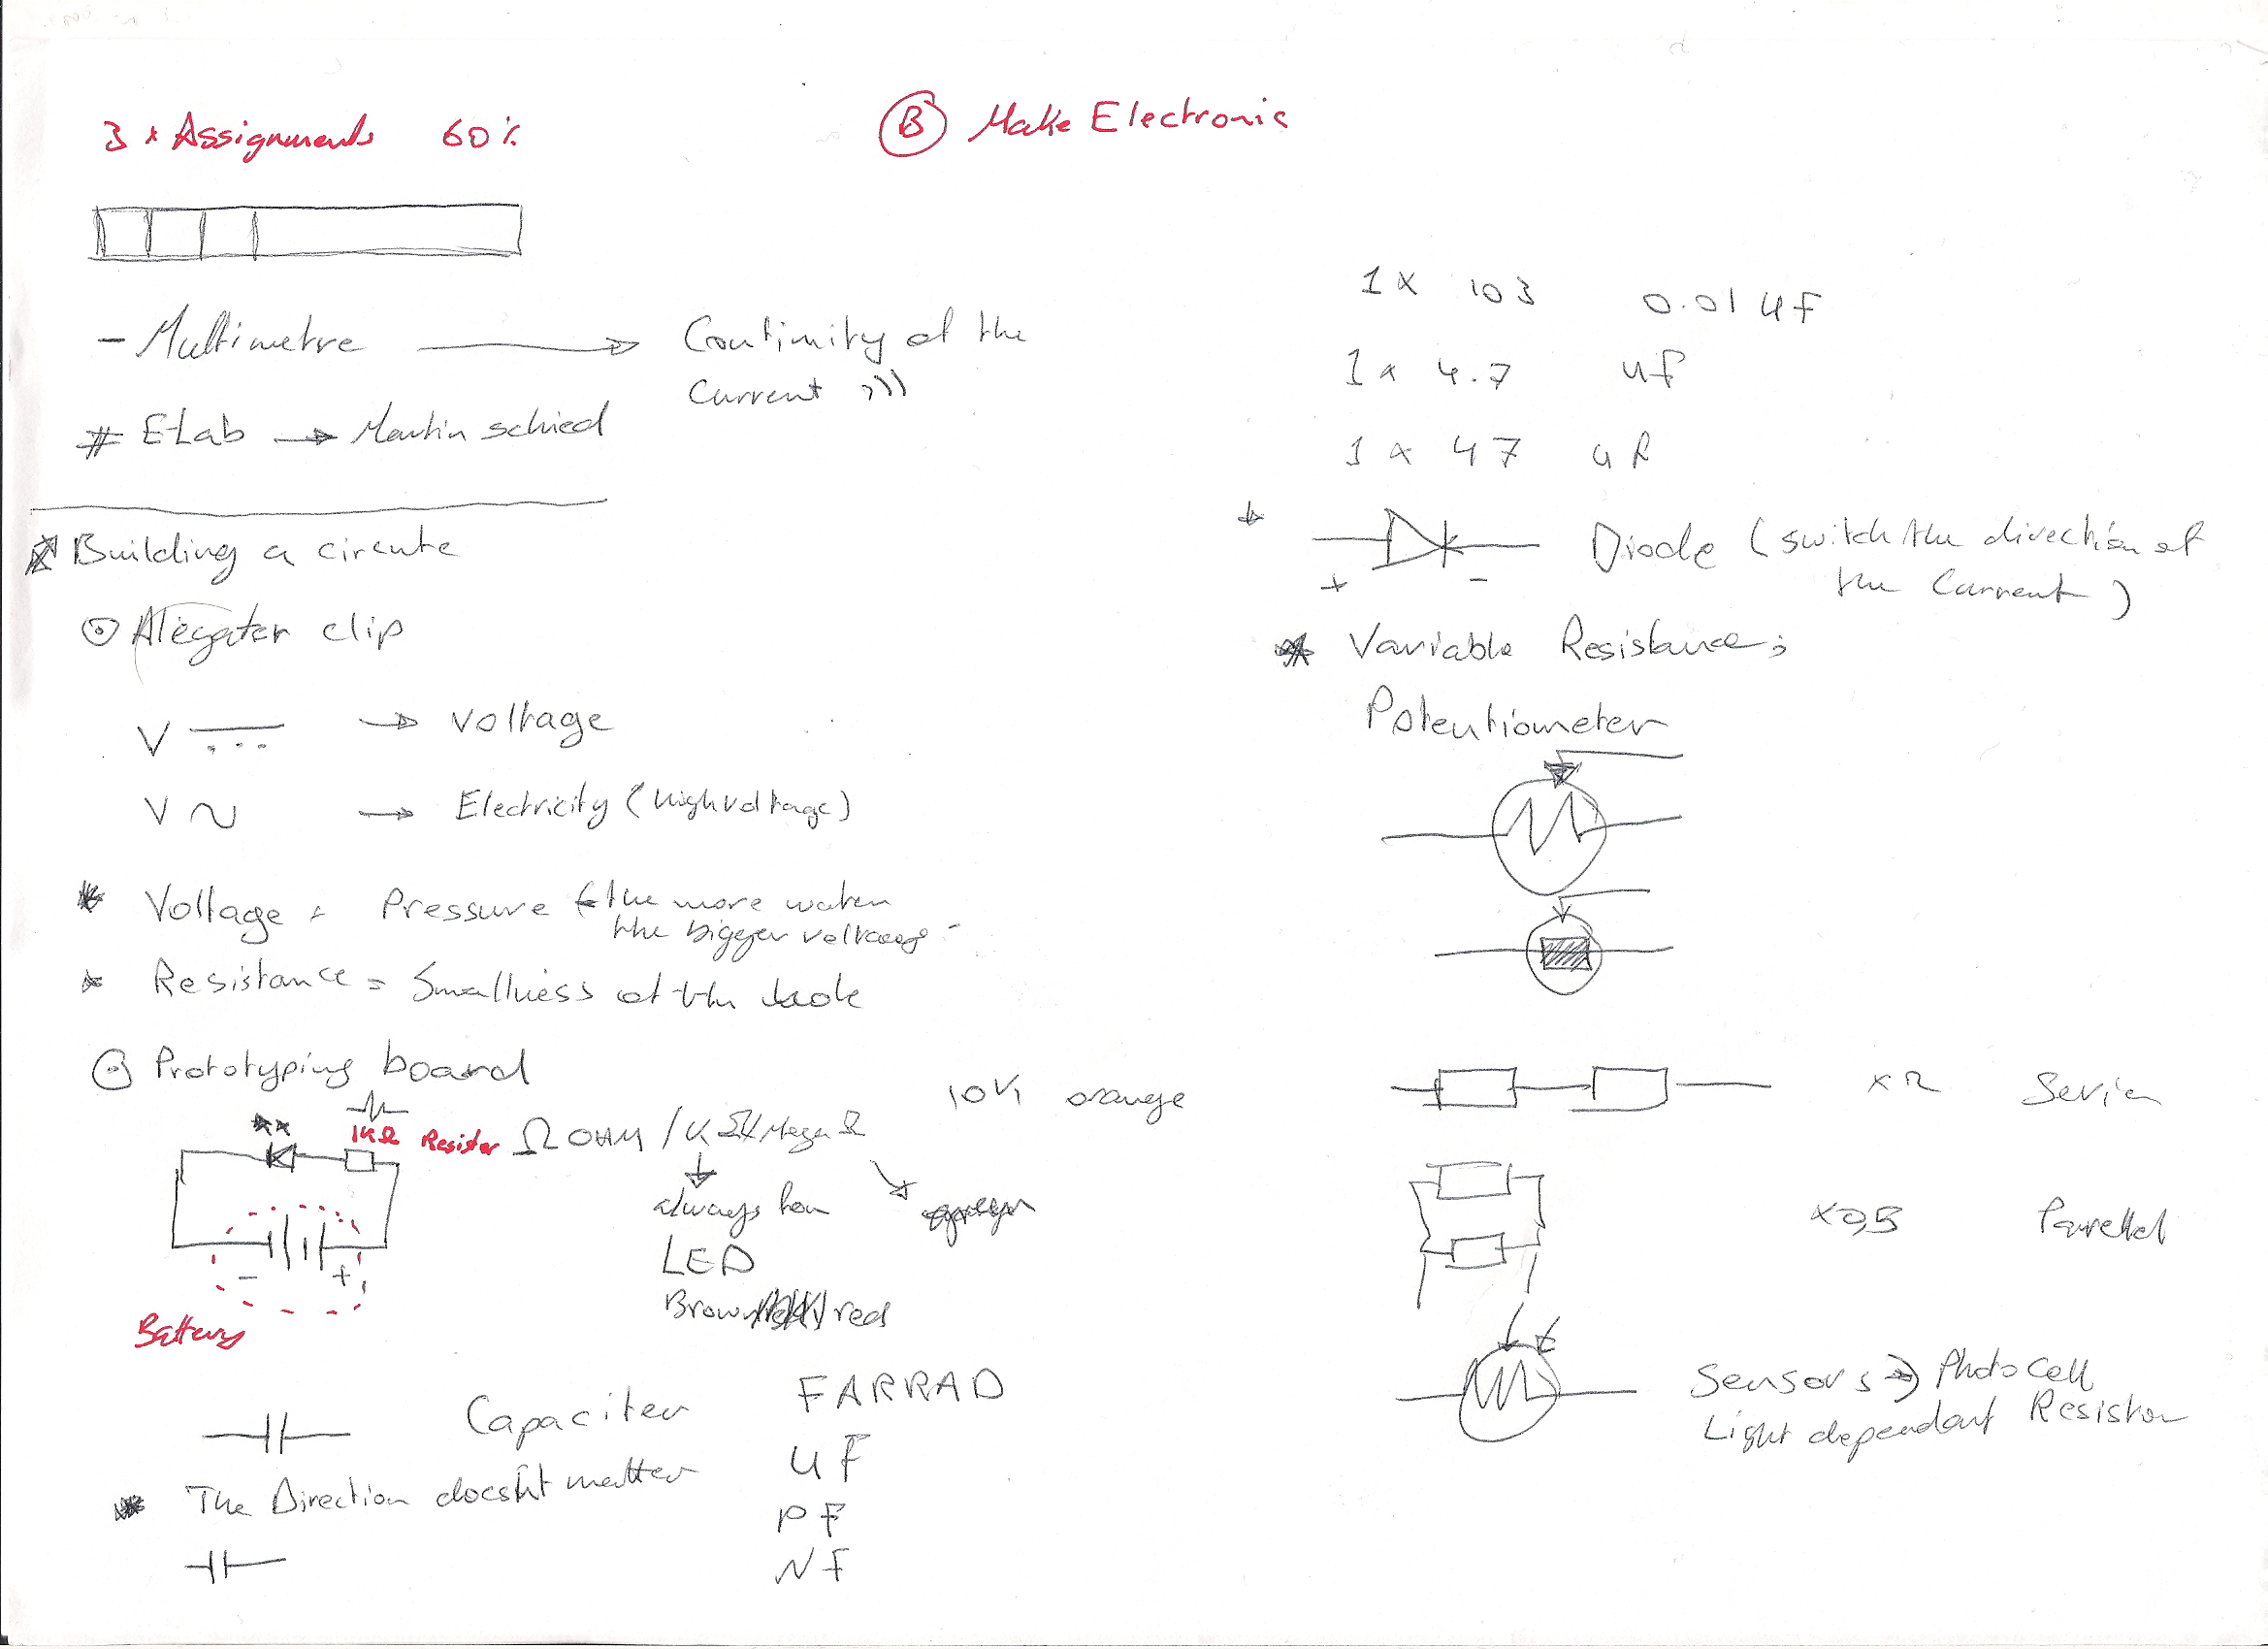 3 x Assignments 60%
B Make Electronic
- Multimetre → Continuity of the
Current )))
# E-Lab → Martin schied
Building a circute
Alegater clip
V → voltage
V ~ → Electricity (high voltage)
* Voltage = Pressure the more water
the bigger voltage
* Resistance = Smallness of the hole
Prototyping board
1KΩ Resister Ω OHM / K Ω / Mega Ω
10K orange
always for
LED
Brown red
- +
Battery
Capaciter FARRAD
* The Direction doesn't matter
UF
PF
NF
1 x 103 0.01 uF
1 x 4.7 uF
1 x 47 uF
+ - Diode (switch the direction of
the Current)
* Variable Resistance:
Potentiometer
x2 Serien
x0,5 Parellel
Sensors → Photo cell
Light dependant Resistor